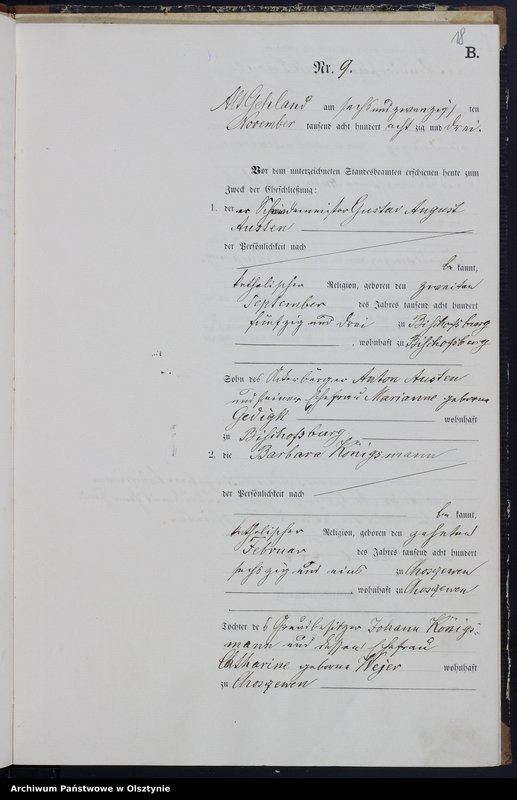 18
B.
Nr. 9.
Alt Gehland am sechsundzwanzig ten
November tausend acht hundert acht zig und drei.
Vor dem unterzeichneten Standesbeamten erschienen heute zum
Zweck der Eheschließung:
1. der Gustav August
Austen
der Persönlichkeit nach
be kannt,
katholischer Religion, geboren den zweiten
September des Jahres tausend acht hundert
fünfzig und drei zu Bischofsburg
, wohnhaft zu Bischofsburg
Sohn des Anton Austen
und seiner Ehefrau Marianne geborene
Gedigk wohnhaft
zu Bischofsburg
2. die Barbara Königsmann
der Persönlichkeit nach
be kannt,
katholischer Religion, geboren den zehnten
Februar des Jahres tausend acht hundert
sechszig und eins zu Choszewen
, wohnhaft zu Choszewen
Tochter des Grundbesitzer Johann Königs-
mann und dessen Ehefrau
Catharine geborne wohnhaft
zu Choszewen
Archiwum Państwowe w Olsztynie